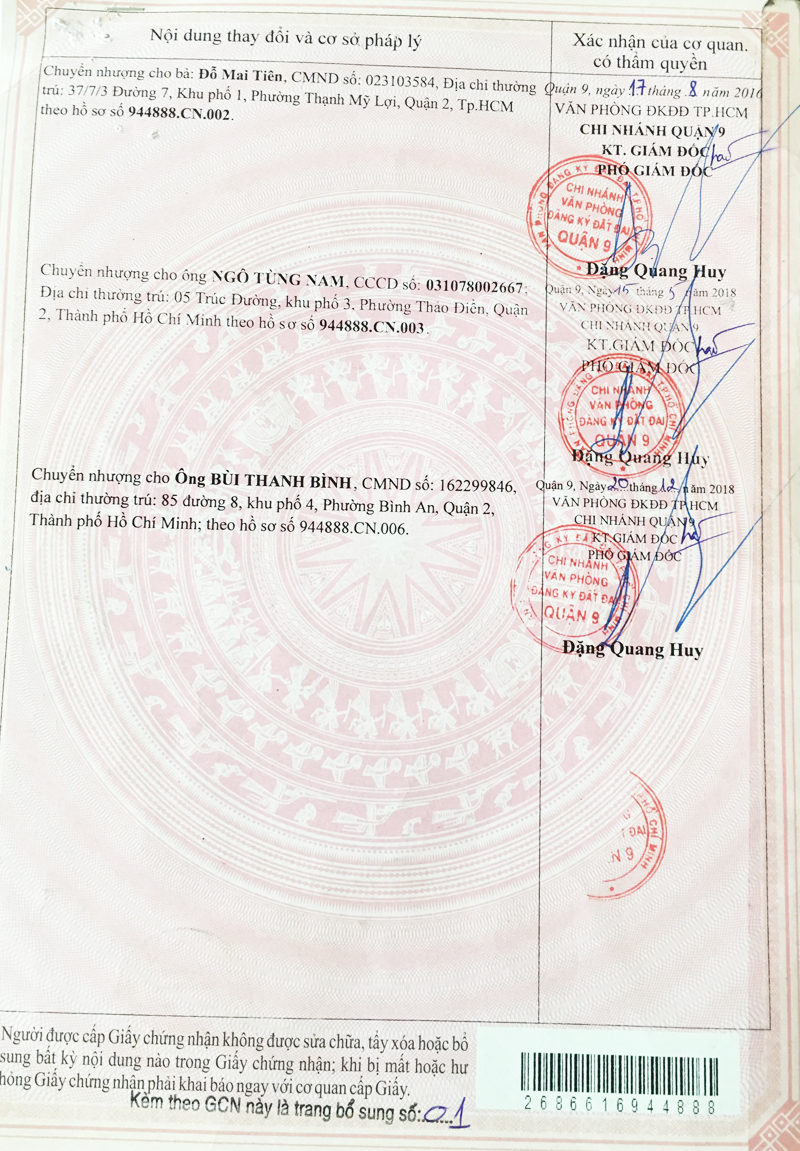 Nội dung thay đổi và cơ sở pháp lý
Xác nhận của cơ quan.
có thẩm quyền
Chuyển nhượng cho bà: Đỗ Mai Tiên, CMND số: 023103584, Địa chỉ thường
trú: 37/7/3 Đường 7, Khu phố 1, Phường Thạnh Mỹ Lợi, Quận 2, Tp.HCM
theo hồ sơ số 944888.CN.002.
Quận 9, ngày 17 tháng 8 năm 2016
VĂN PHÒNG ĐKĐĐ TP.HCM
CHI NHÁNH QUẬN 9
KT. GIÁM ĐỐC
PHÓ GIÁM ĐỐC
CHI NHÁNH
VĂN PHÒNG
ĐĂNG KÝ ĐẤT ĐAI
QUẬN 9
Đặng Quang Huy
Chuyển nhượng cho ông NGÔ TÙNG NAM, CCCD số: 031078002667;
Địa chỉ thường trú: 05 Trúc Đường, khu phố 3, Phường Thảo Điền, Quận
2, Thành phố Hồ Chí Minh theo hồ sơ số 944888.CN.003.
Quận 9, Ngày 15 tháng 5 năm 2018
VĂN PHÒNG ĐKĐĐ TP.HCM
CHI NHÁNH QUẬN 9
KT.GIÁM ĐỐC
PHÓ GIÁM ĐỐC
CHI NHÁNH
VĂN PHÒNG
ĐĂNG KÝ ĐẤT ĐAI
QUẬN 9
Đặng Quang Huy
Chuyển nhượng cho Ông BÙI THANH BÌNH, CMND số: 162299846,
địa chỉ thường trú: 85 đường 8, khu phố 4, Phường Bình An, Quận 2,
Thành phố Hồ Chí Minh; theo hồ sơ số 944888.CN.006.
Quận 9, Ngày 20 tháng 12 năm 2018
VĂN PHÒNG ĐKĐĐ TP.HCM
CHI NHÁNH QUẬN 9
KT.GIÁM ĐỐC
PHÓ GIÁM ĐỐC
CHI NHÁNH
VĂN PHÒNG
ĐĂNG KÝ ĐẤT ĐAI
QUẬN 9
Đặng Quang Huy
PHỐ CHÍ MINH
ĐAI
N 9
Người được cấp Giấy chứng nhận không được sửa chữa, tẩy xóa hoặc bổ
sung bất kỳ nội dung nào trong Giấy chứng nhận; khi bị mất hoặc hư
hỏng Giấy chứng nhận phải khai báo ngay với cơ quan cấp Giấy.
Kèm theo GCN này là trang bổ sung số: 01
2686616944888